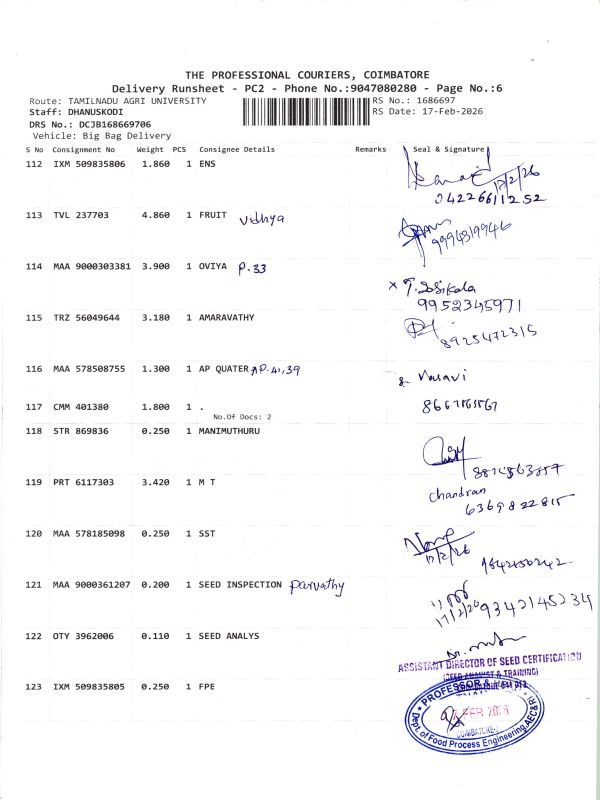 THE PROFESSIONAL COURIERS, COIMBATORE
Delivery Runsheet - PC2 - Phone No.:9047080280 - Page No.:6
Route: TAMILNADU AGRI UNIVERSITY RS No.: 1686697
Staff: DHANUSKODI RS Date: 17-Feb-2026
DRS No.: DCJB168669706
Vehicle: Big Bag Delivery
S No Consignment No Weight PCS Consignee Details Remarks Seal & Signature
112 IXM 509835806 1.860 1 ENS
17/2/26
04226611252
113 TVL 237703 4.860 1 FRUIT Vidhya
9994319946
114 MAA 9000303381 3.900 1 OVIYA P.33
x T. Sasikala
9952345971
115 TRZ 56049644 3.180 1 AMARAVATHY
8925472315
116 MAA 578508755 1.300 1 AP QUATER AP.41,39
117 CMM 401380 1.800 1 .
No.Of Docs: 2
118 STR 869836 0.250 1 MANIMUTHURU
119 PRT 6117303 3.420 1 M T
Chandran
6369822815
120 MAA 578185098 0.250 1 SST
17/2/26
121 MAA 9000361207 0.200 1 SEED INSPECTION Parvathy
17/2/26 9342145234
122 OTY 3962006 0.110 1 SEED ANALYS
ASSISTANT DIRECTOR OF SEED CERTIFICATION
(SEED ANALYST & TRAINING)
123 IXM 509835805 0.250 1 FPE
PROFESSOR &
FEB 2026
COIMBATORE-3
Dept. of Food Process Engineering, AEC&RI